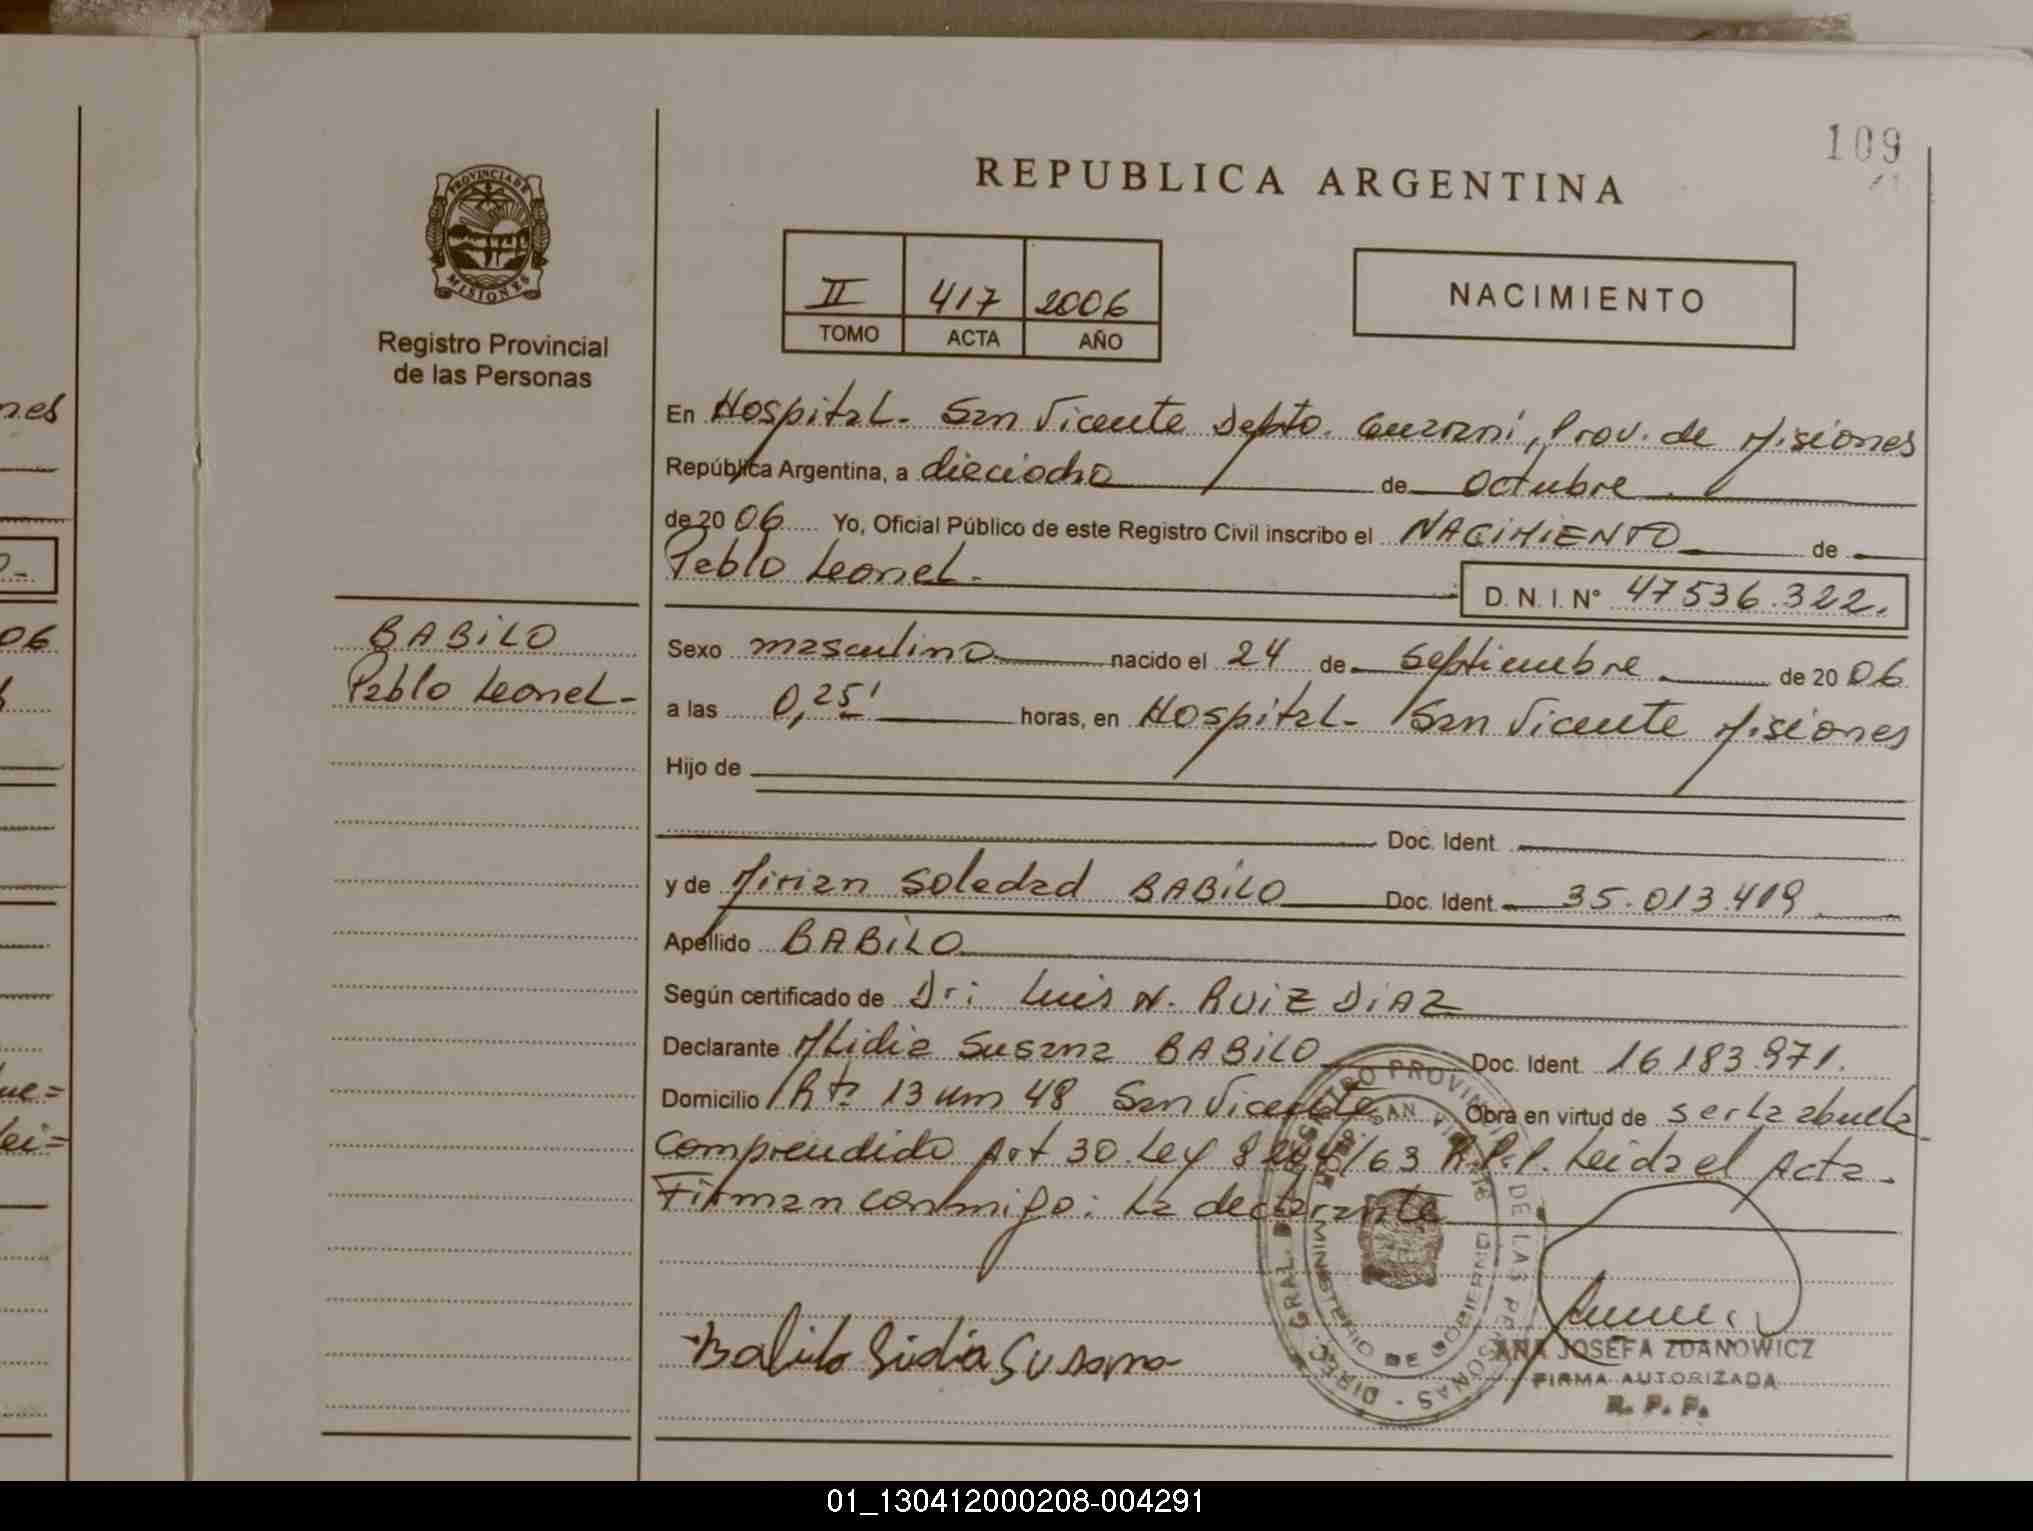 109
REPUBLICA ARGENTINA
PROVINCIA DE
MISIONES
Registro Provincial
de las Personas
II 417 2006
TOMO ACTA AÑO
NACIMIENTO
En Hospital - San Vicente Depto. Guaraní, Prov. de Misiones
República Argentina, a dieciocho de octubre
de 20 06 Yo, Oficial Público de este Registro Civil inscribo el NACIMIENTO de
Pablo Leonel.
D. N. I. N° 47536.322.
BABILO
Pablo Leonel -
Sexo masculino nacido el 24 de Septiembre de 20 06
a las 0,25' horas, en Hospital - San Vicente Misiones
Hijo de
Doc. Ident.
y de Mirian Soledad BABILO Doc. Ident. 35.013.419
Apellido BABILO
Según certificado de Dr: Luis N. RUIZ DIAZ
Declarante Lidia Susana BABILO Doc. Ident. 16.183.971.
Domicilio Rta 13 Km 48 San Vicente Obra en virtud de ser la abuela
Comprendido Art 30 Ley 8204/63 R.P.P. Leida el Acta
Firman conmigo: La declarante
Babilo Lidia Susana
DIREC. GRAL. DEL REGISTRO PROVINCIAL DE LAS PERSONAS
SAN VICENTE
MINISTERIO DE GOBIERNO
ANA JOSEFA ZDANOWICZ
FIRMA AUTORIZADA
R. P. P.
nes
06
ue=
ei=
01_130412000208-004291